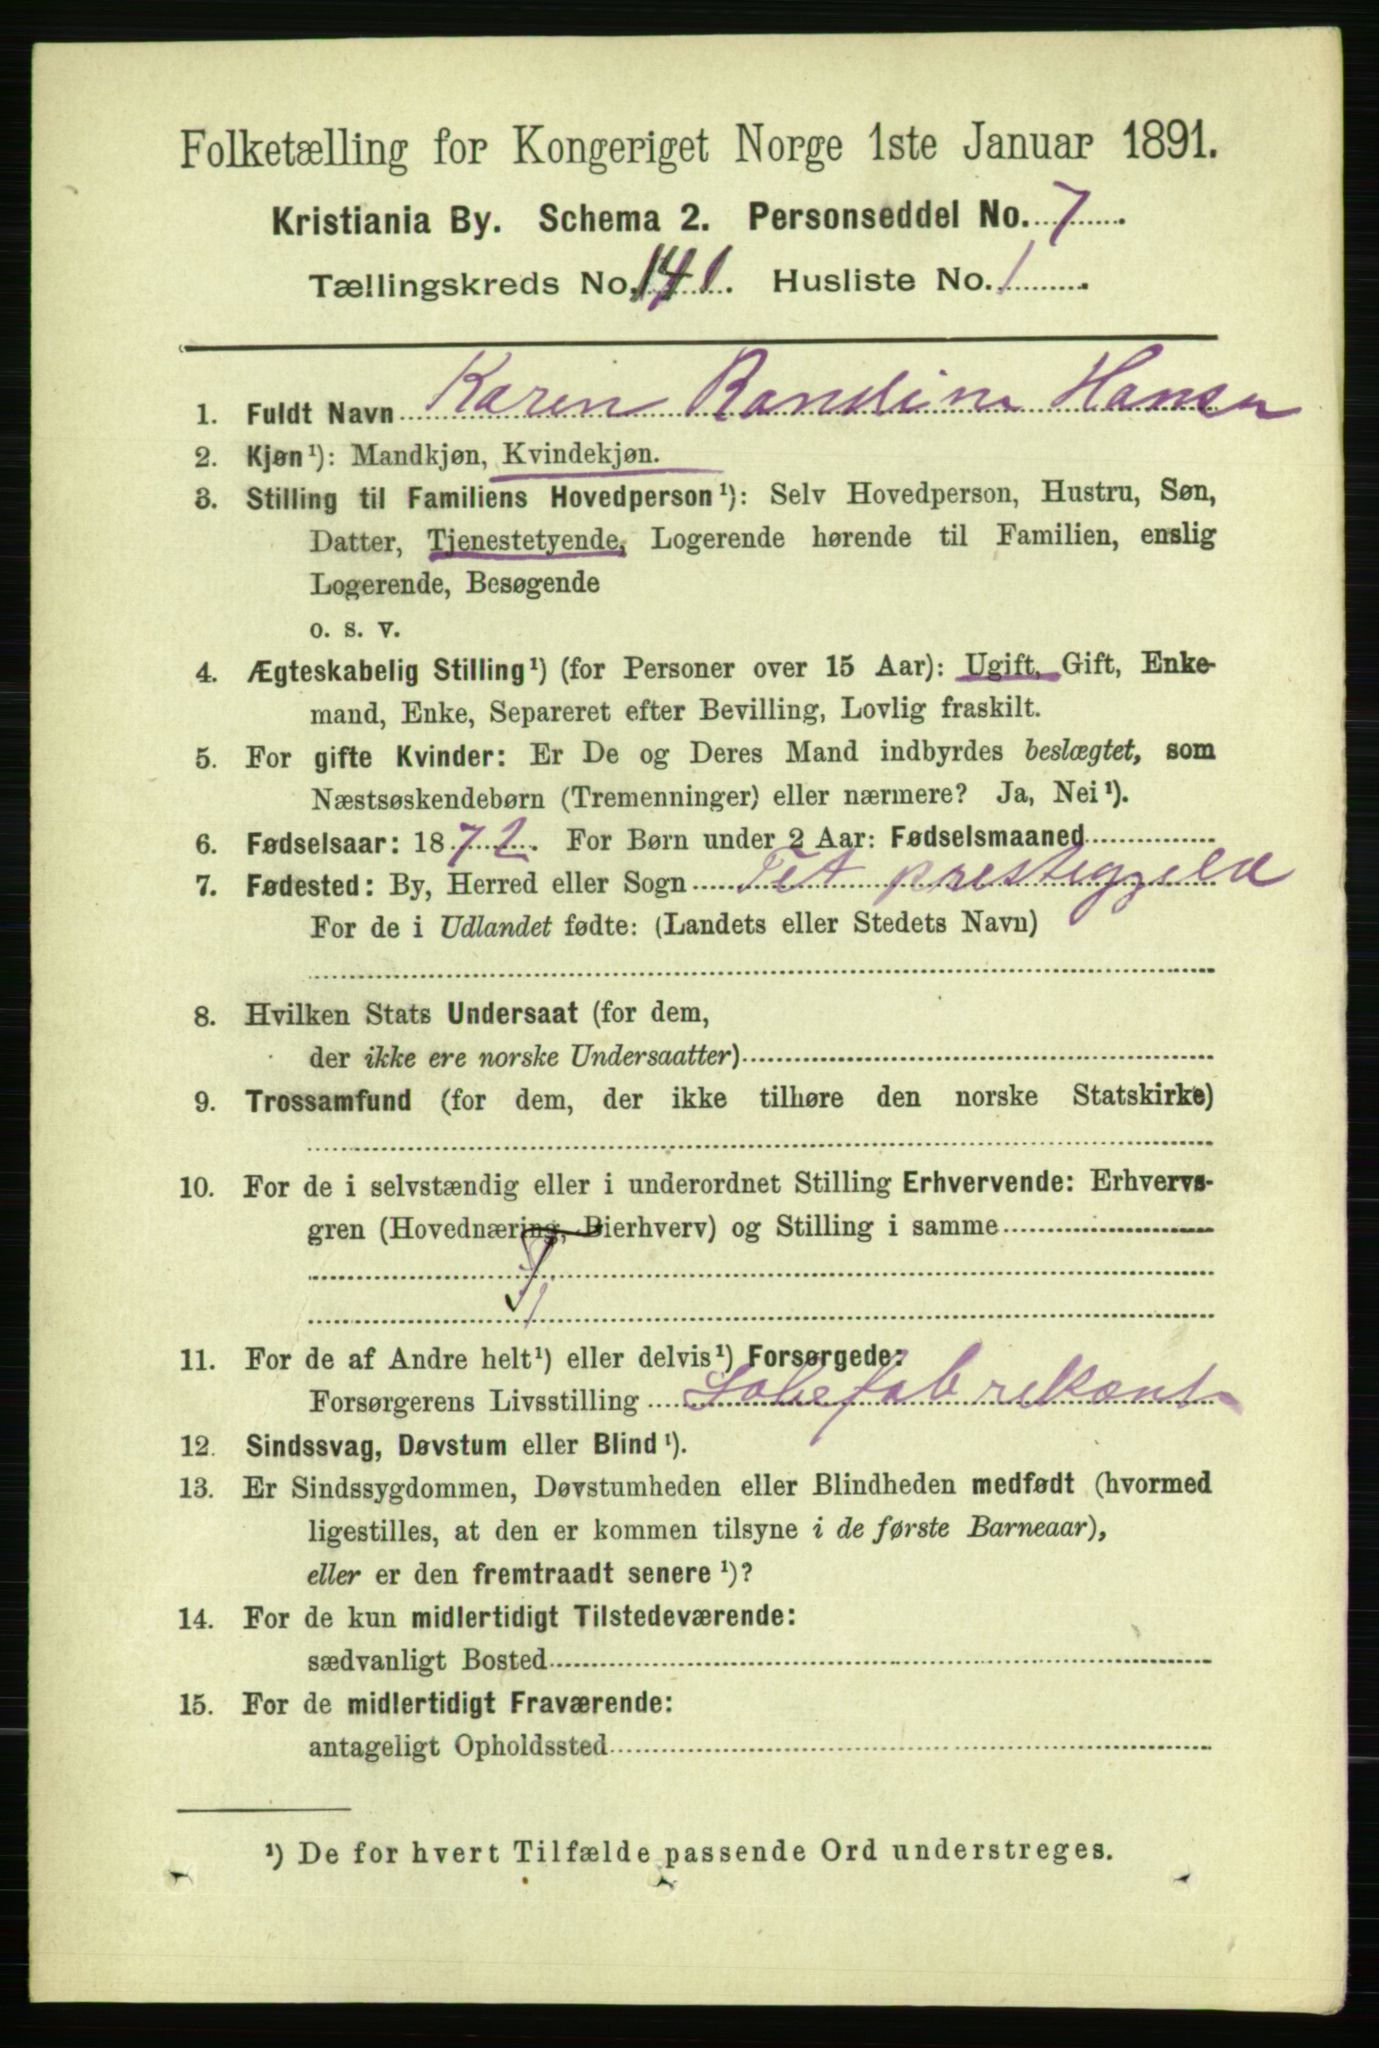 Folketælling for Kongeriget Norge 1ste Januar 1891.
Kristiania By. Schema 2. Personseddel No. 7
Tællingskreds No. 141. Husliste No. 1
1. Fuldt Navn Karen Randine Hansen
2. Kjøn¹): Mandkjøn, Kvindekjøn.
3. Stilling til Familiens Hovedperson¹): Selv Hovedperson, Hustru, Søn,
Datter, Tjenestetyende, Logerende hørende til Familien, enslig
Logerende, Besøgende
o. s. v.
4. Ægteskabelig Stilling¹) (for Personer over 15 Aar): Ugift, Gift, Enke-
mand, Enke, Separeret efter Bevilling, Lovlig fraskilt.
5. For gifte Kvinder: Er De og Deres Mand indbyrdes beslægtet, som
Næstsøskendebørn (Tremenninger) eller nærmere? Ja, Nei¹).
6. Fødselsaar: 1872. For Børn under 2 Aar: Fødselsmaaned
7. Fødested: By, Herred eller Sogn Fet prestegjeld
For de i Udlandet fødte: (Landets eller Stedets Navn)
8. Hvilken Stats Undersaat (for dem,
der ikke ere norske Undersaatter)
9. Trossamfund (for dem, der ikke tilhøre den norske Statskirke)
10. For de i selvstændig eller i underordnet Stilling Erhvervende: Erhvervs-
gren (Hovednæring, Bierhverv) og Stilling i samme
11. For de af Andre helt¹) eller delvis¹) Forsørgede:
Forsørgerens Livsstilling
12. Sindssvag, Døvstum eller Blind¹).
13. Er Sindssygdommen, Døvstumheden eller Blindheden medfødt (hvormed
ligestilles, at den er kommen tilsyne i de første Barneaar),
eller er den fremtraadt senere¹)?
14. For de kun midlertidigt Tilstedeværende:
sædvanligt Bosted
15. For de midlertidigt Fraværende:
antageligt Opholdssted
¹) De for hvert Tilfælde passende Ord understreges.